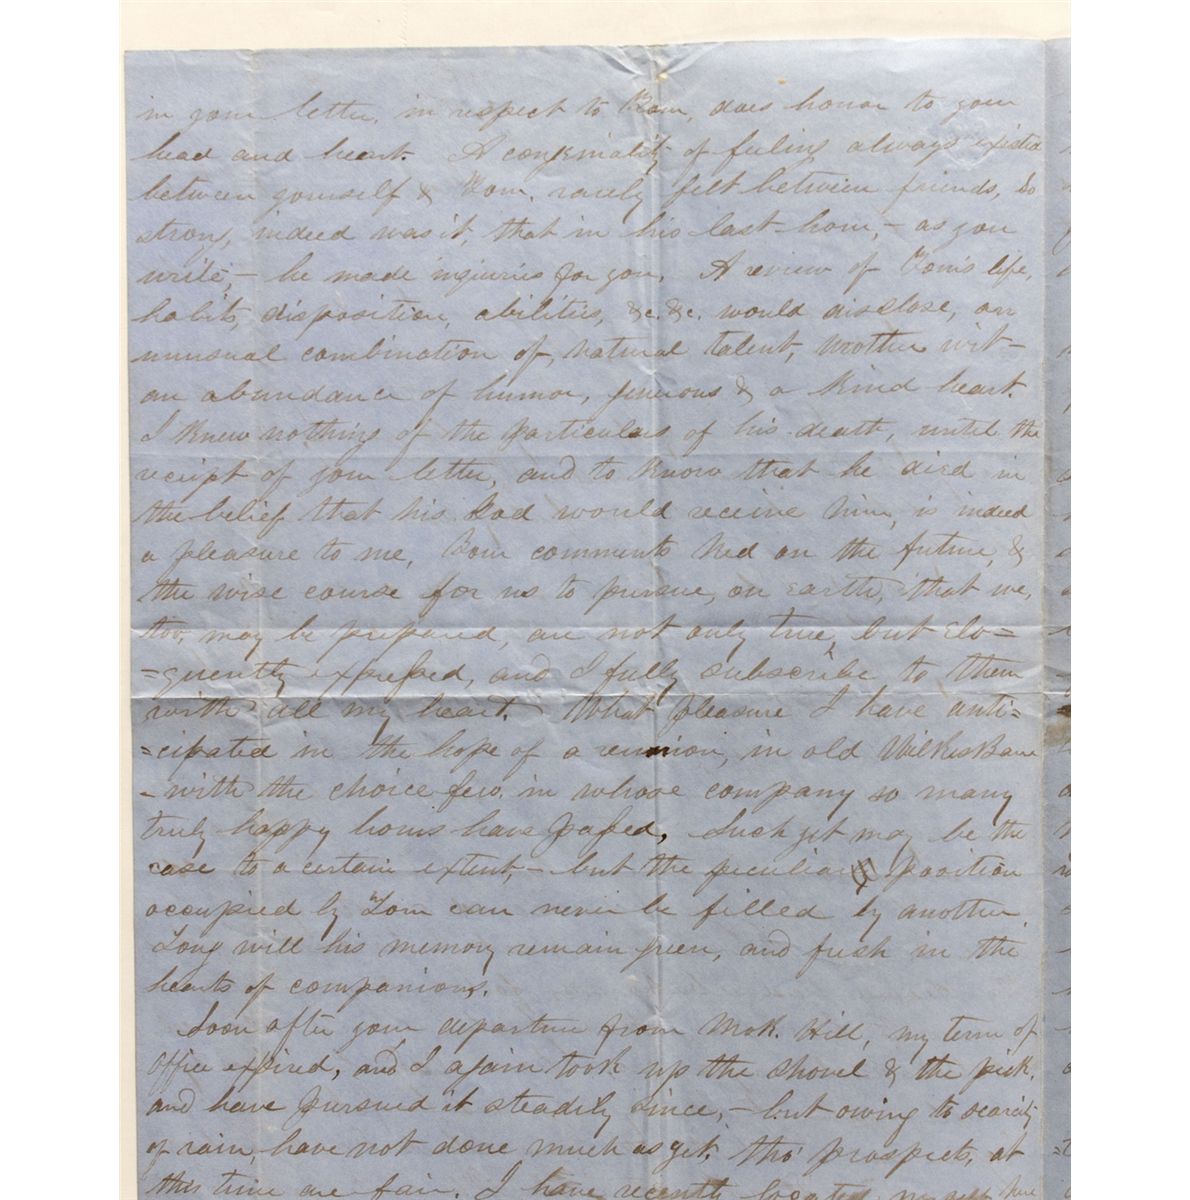 in your letter, in respect to Tom, does honor to your
head and heart. A congeniality of feeling always existed
between yourself & Tom, rarely felt between friends, So
strong, indeed was it, that in his last hour, - as you
write, - he made inquiries for you. A review of Tom's life,
habits, disposition, abilities, &c. &c. would disclose, an
unusual combination of, natural talent, mother wit -
an abundance of humor, generous & a kind heart.
I knew nothing of the particulars of his death, until the
receipt of your letter, and to know that he died in
the belief that his God would receive him, is indeed
a pleasure to me, Your comments Ned on the future, &
the wise course for us to pursue, on Earth, that we,
too, may be prepared, are not only true, but elo=
=quently expressed, and I fully subscribe to them
with all my heart. What pleasure I have anti=
=cipated in the hope of a reunion, in old WilkesBarre
- with the choice few, in whose company so many
truly happy hours have passed, Such yet may be the
case to a certain extent, - but the peculiar position
occupied by Tom can never be filled by another
Long will his memory remain green, and fresh in the
hearts of companions.
Soon after your departure from Mok. Hill, my term of
office expired, and I again took up the shovel & the pick,
and have pursued it steadily since, - but owing to scarcity
of rain, have not done much as yet, tho' prospects, at
this time are fair. I have recently